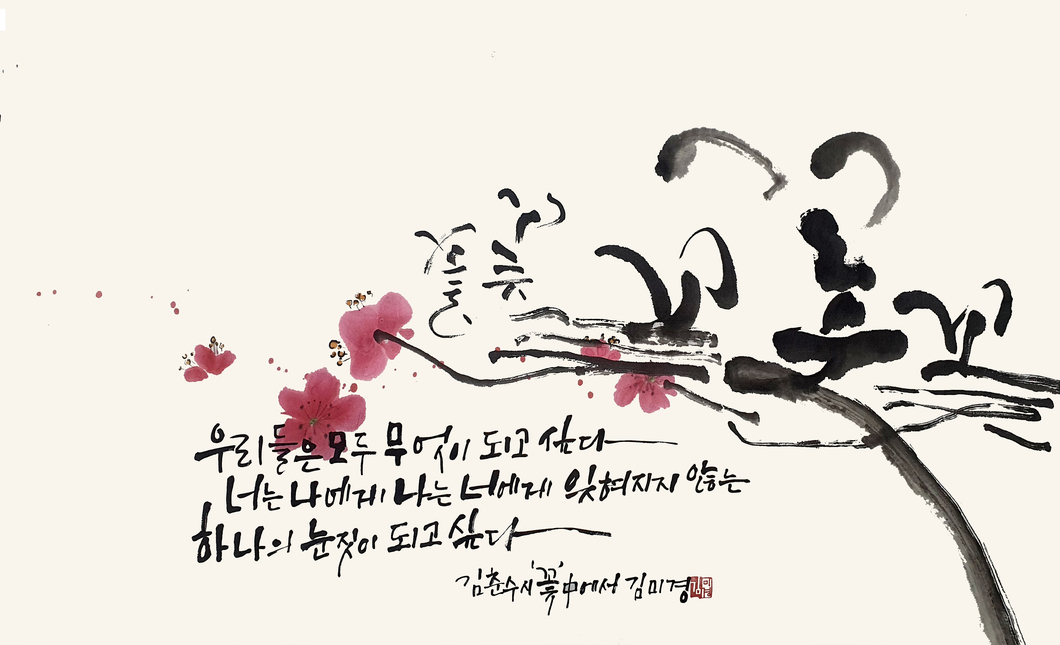 우리들은 모두 무엇이 되고 싶다
너는 나에게 나는 너에게 잊혀지지 않는
하나의 눈짓이 되고 싶다
김춘수시 '꽃' 中에서 김미경